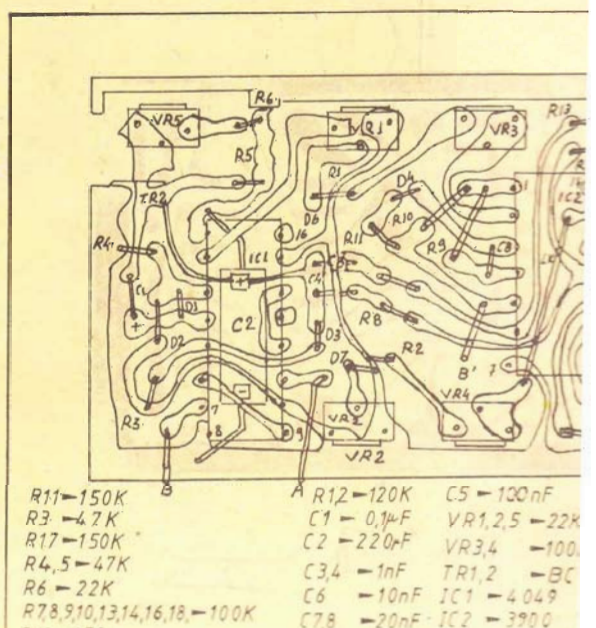 VR5
R6
VR1
VR3
R13
R5
R1
D4
TR2
D6
R10
IC2
R4
IC1
16
R11
R9
C8
C1
D1
C2
C4
R8
D2
D3
B'
7
R3
D7
R2
VR4
7
8
9
VR2
VR2
B
A
R11-150K
R3-47K
R17-150K
R4,5-47K
R6-22K
R7,8,9,10,13,14,16,18,-100K
R1,2-120K
C1 - 0,1µF
C2-220µF
C3,4-1nF
C6 -10nF
C7,8 -20nF
C5 -100nF
VR1,2,5 -22K
VR3,4 -100
TR1,2 -BC
IC1 -4049
IC2 -3900